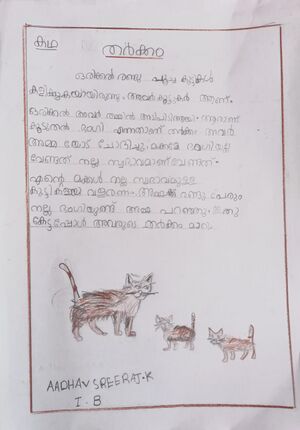 കഥ
തർക്കം
ഒരിക്കൽ രണ്ടു പൂച്ച കുട്ടികൾ
കളിക്കുകയായിരുന്നു. അവർ കൂട്ടുകാർ ആണ്.
ഒരിക്കൽ അവർ തമ്മിൽ
കൂടുതൽ ഭംഗി എന്നതാണ് തർക്കം അവർ
അമ്മ യോട് ചോദിച്ചു. മക്കളെ ഭംഗിയല്ല
വേണ്ടത് നല്ല സ്വഭാവമാണ് വേണ്ടത്.
എന്റെ മക്കൾ നല്ല സ്വഭാവമുള്ള
കുട്ടികളായി വളരണം. നിങ്ങൾക്ക് രണ്ടു പേരും
നല്ല ഭംഗിയുണ്ട് അമ്മ പറഞ്ഞു. ഇതു
കേട്ടപ്പോൾ അവരുടെ തർക്കം മാറി.
AADHAV SREERAJ.K
I.B